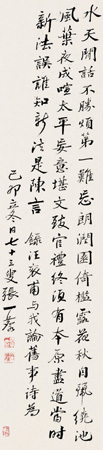 水天閒話不勝煩第一難忘朗潤園倚檻露荷秋珮繞池
風葉夜成喧太平意堪文致官禮終須有本原盡道當時
新法誤誰知新法是陳言 錄汪袞甫與我論舊事詩為
己卯立冬日七十三叟張一麐